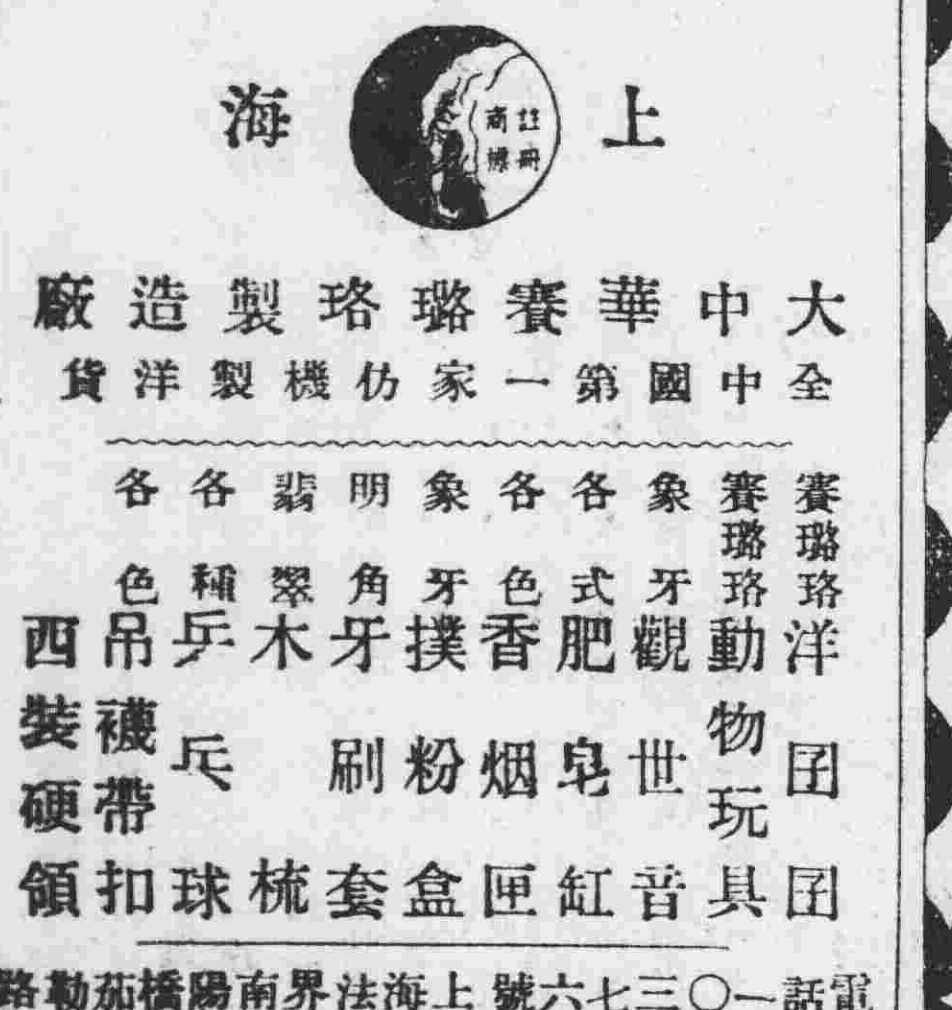 上海
註冊
商標
大中華賽璐珞製造廠
全中國第一家仿機製洋貨
賽璐珞洋囝囝
賽璐珞動物玩具
象牙觀世音
各式肥皂缸
各色香烟匣
象牙撲粉盒
明角牙刷套
翡翠木梳
各種乒乓球
各色吊襪帶扣
西裝硬領
電話一〇三七六號 上海法界南陽橋茄勒路